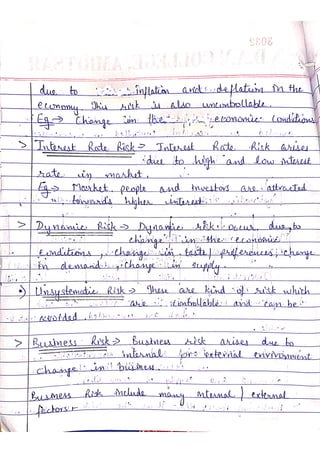 due to inflation and deflation in the
economy. This risk is also uncontrollable.
Eg → Change in the economic conditions
> Interest Rate Risk → Interest Rate Risk arises
due to high and low interest
rate in market.
Eg → Market, people and Investors are attracted
towards higher interest.
> Dynamic Risk → Dynamic risk occur, due to
change in the economic
conditions, change in taste, preferences, change
in demand, change in supply
Unsystematic Risk → These are kind of risk which
are controllable and can be
avoided.
> Business Risk → Business risk arises due to
internal for external environment
change in business.
Business Risk include many internal / external
factors